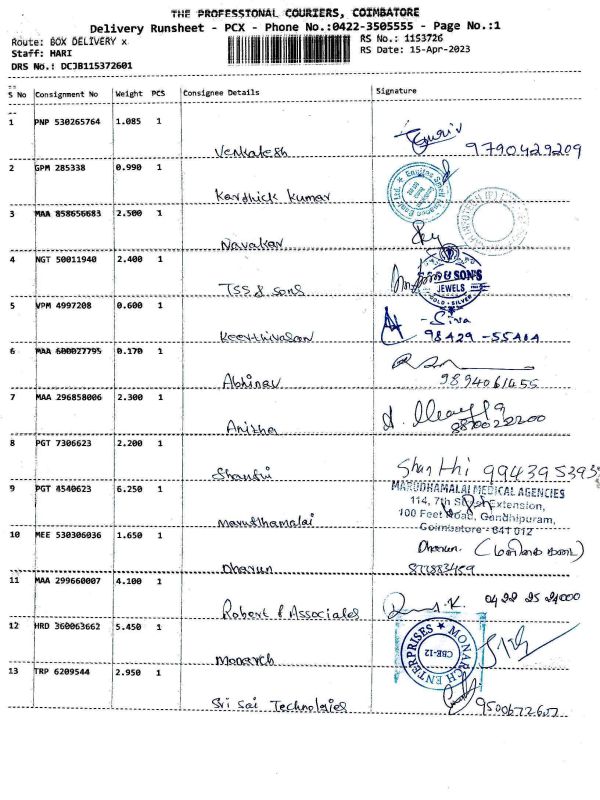 THE PROFESSIONAL COURIERS, COIMBATORE
Delivery Runsheet - PCX - Phone No.:0422-3505555 - Page No.:1
Route: BOX DELIVERY x
RS No.: 1153726
Staff: HARI
RS Date: 15-Apr-2023
DRS No.: DCJB115372601
S No Consignment No Weight PCS Consignee Details Signature
1 PNP 530265764 1.085 1
Venkatesh 9790429209
2 GPM 285338 0.990 1
Karthick Kumar
3 MAA 858656683 2.500 1
Navakar
4 NGT 50011940 2.400 1
TSS & sons
& SON'S
JEWELS
GOLD - SILVER
5 VPM 4997208 0.600 1
Keerthivasan
- Siva
98429 - 55404
6 MAA 600027795 0.170 1
Abhinav
9894061455
7 MAA 296858006 2.300 1
Anitha
8 PGT 7306623 2.200 1
Shanthi
Shanthi 9943953935
9 PGT 4540623 6.250 1
Maruthamalai
MARUDHAMALAI MEDICAL AGENCIES
114, 7th Street Extension,
100 Feet Road, Gandhipuram,
Coimbatore - 641 012
10 MEE 530306036 1.650 1
Dharun
Dharun
11 MAA 299660007 4.100 1
Robert & Associates
0422 25 24000
12 HRD 360063662 5.450 1
Monarch
MONARCH ENTERPRISES
CBE-12
13 TRP 6209544 2.950 1
Sri Sai Technologies
9500672607